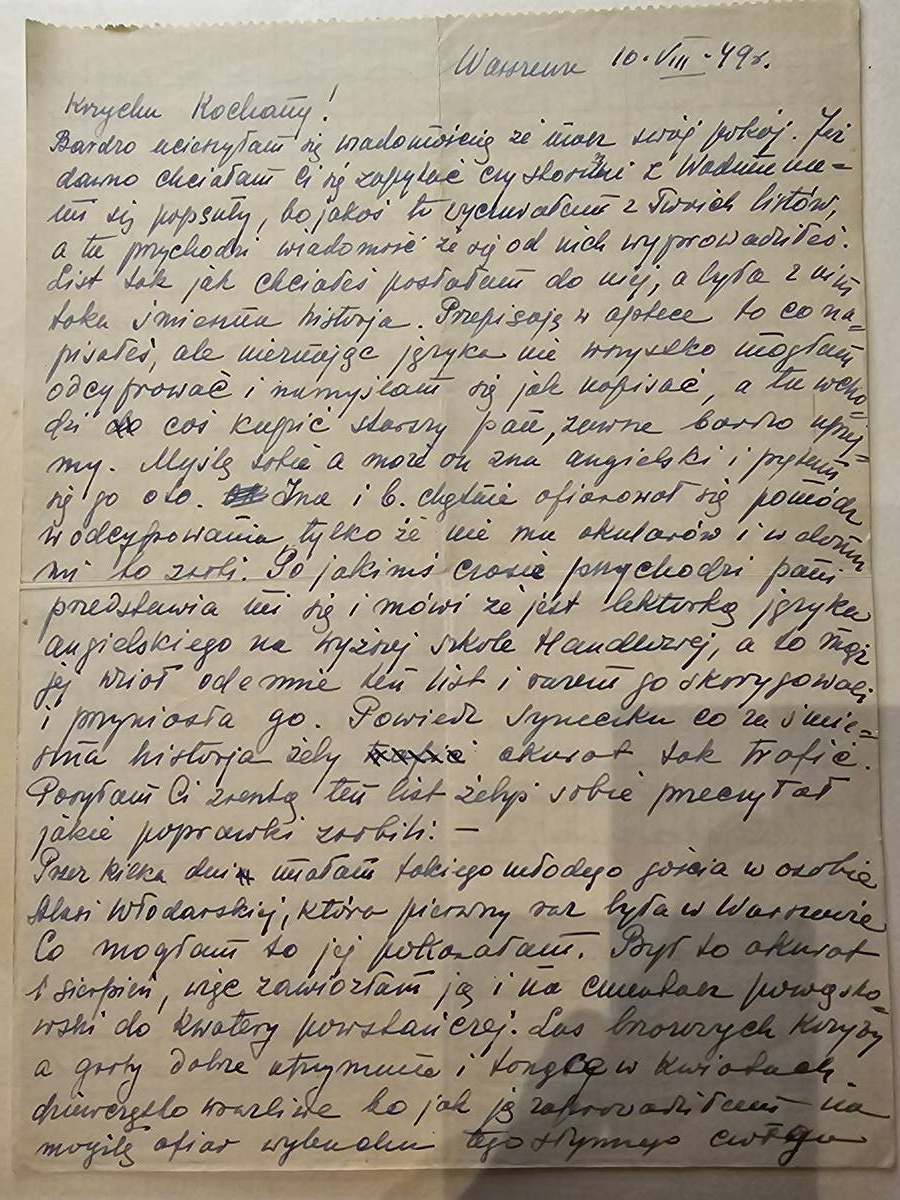 Warszawa 10.VIII.49r.
Krzychu Kochany!
Bardzo ucieszyłam się wiadomością że masz swój pokój. Już
dawno chciałam Ci się zapytać czy stosunki z Wadumi na=
mi się popsuły, bo jakoś to wyczuwałam z Twoich listów,
a tu przychodzi wiadomość że się od nich wyprowadziłeś.
List tak jak chciałeś posłałam do niej, a była z nim
taka śmieszna historja. Przepisują w aptece to co na=
pisałeś, ale nieznając języka nie wszystko mogłam
odcyfrować i namyślam się jak napisać, a tu wcho=
dzi coś kupić starszy pan, zawsze bardzo uprzej=
my. Myślę sobie a może on zna angielski i pytam
się go oto. Zna i b. chętnie ofiarował się pomódz
w odcyfrowaniu tylko że nie ma okularów i w domu
mi to zrobi. Po jakimś czasie przychodzi pani
przedstawia mi się i mówi że jest lektorką języka
angielskiego na wyższej szkole Handlowej, a to mąż
jej wziął odemnie ten list i razem go skorygowali
i przyniosła go. Powiedz syneczku co za śmie=
szna historja żeby akurat tak trafić.
Posyłam Ci zresztą ten list żebyś sobie przeczytał
jakie poprawki zrobili. —
Przez kilka dni miałam takiego młodego gościa w osobie
Alasi Włodarskiej, która pierwszy raz była w Warszawie
Co mogłam to jej pokazałam. Był to akurat
1 sierpień, więc zawiozłam ją i na cmentarz powązko=
wski do kwatery powstańczej. Las brzozowych krzyży
a groby dobrze utrzymane i tonące w kwiatach
dziewczątko wrażliwe bo jak ją zaprowadziłam na
mogiłę ofiar wybuchu tego słynnego czołgu